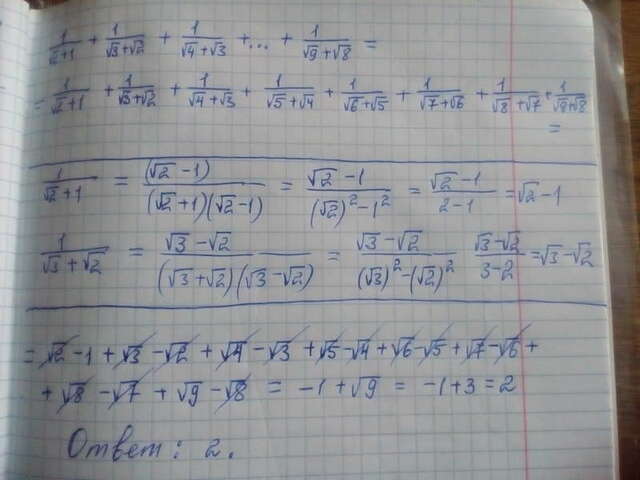 1/(√2+1) + 1/(√3+√2) + 1/(√4+√3) +...+ 1/(√9+√8) =
= 1/(√2+1) + 1/(√3+√2) + 1/(√4+√3) + 1/(√5+√4) + 1/(√6+√5) + 1/(√7+√6) + 1/(√8+√7) + 1/(√9+√8)
=
1/(√2+1) = (√2-1)/((√2+1)(√2-1)) = (√2-1)/((√2)²-1²) = (√2-1)/(2-1) = √2-1
1/(√3+√2) = (√3-√2)/((√3+√2)(√3-√2)) = (√3-√2)/((√3)²-(√2)²) (√3-√2)/(3-2) = √3-√2
= √2-1+√3-√2+√4-√3+√5-√4+√6-√5+√7-√6+
+√8-√7+√9-√8 = -1+√9 = -1+3=2
Ответ: 2.